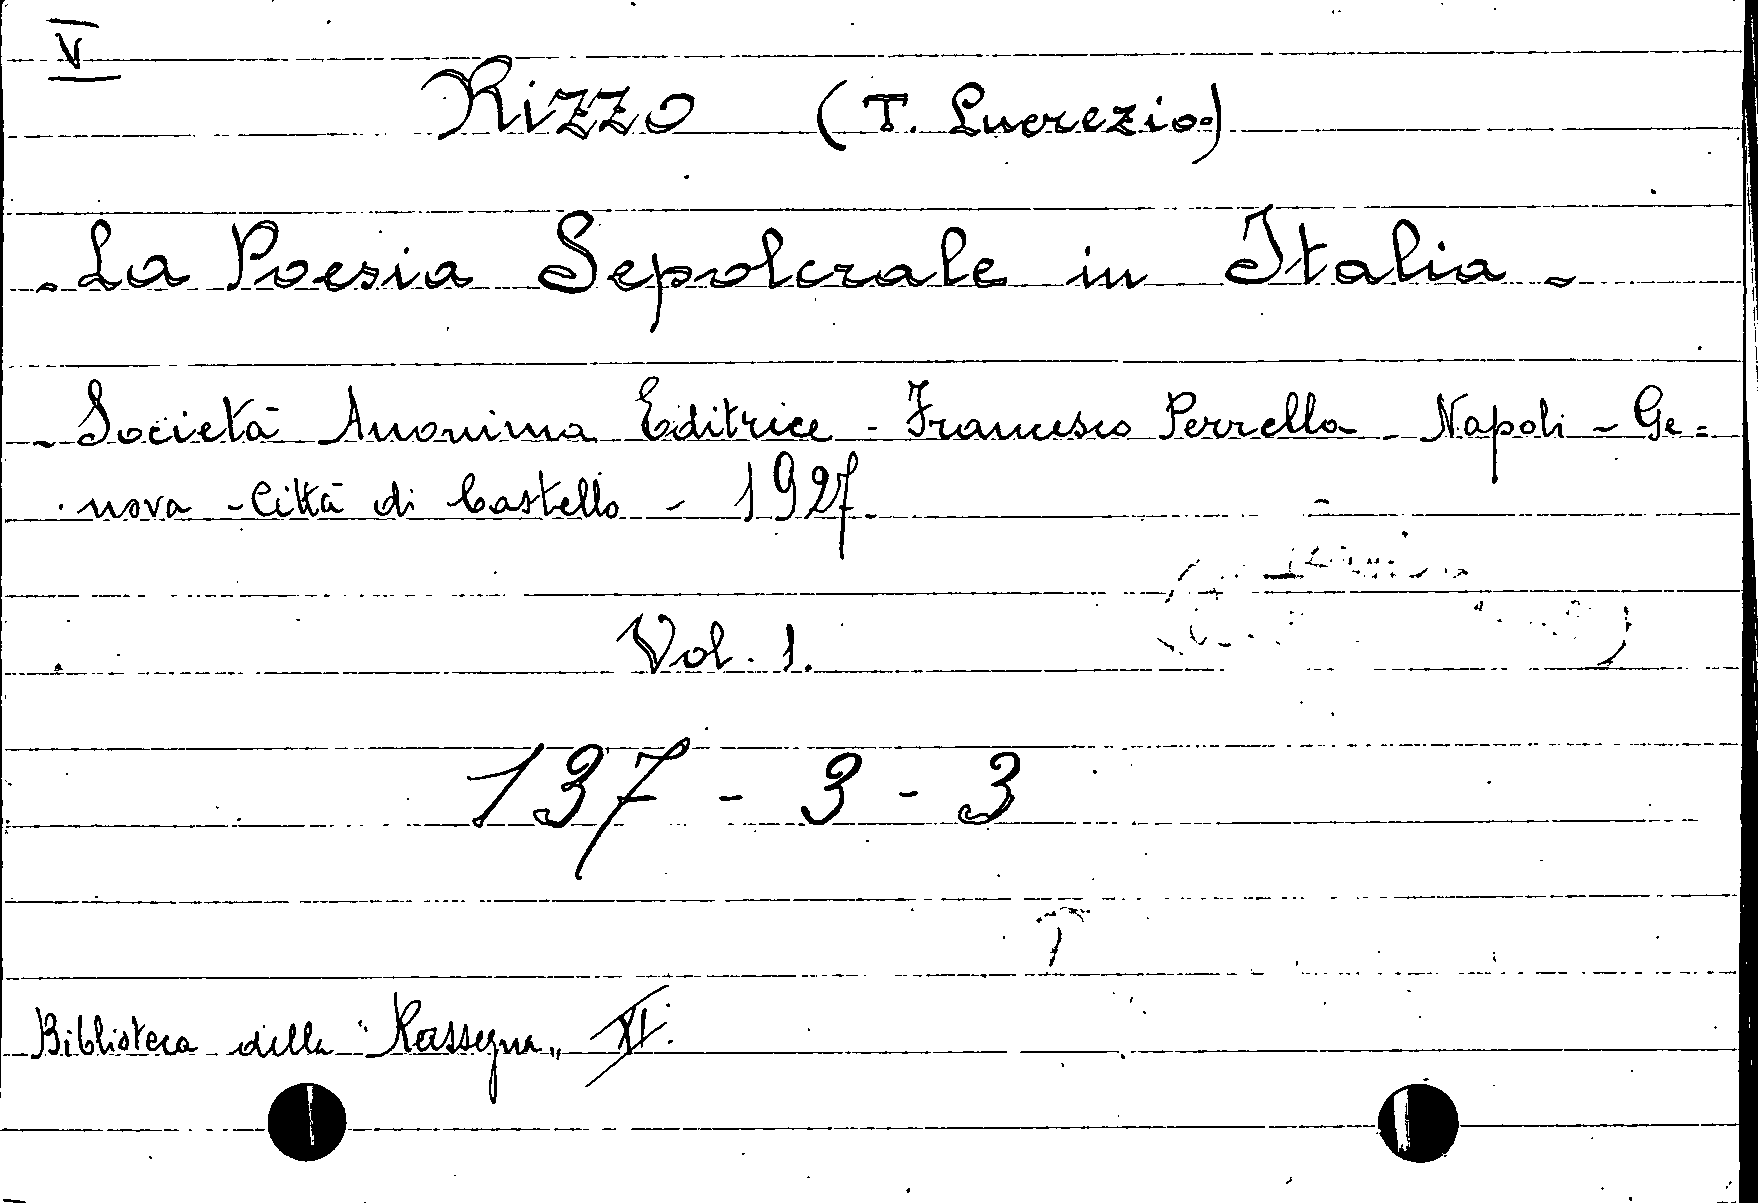 V
Rizzo (T. Lucrezio)
- La Poesia Sepolcrale in Italia -
- Società Anonima Editrice - Francesco Perrella - Napoli - Ge=
nova - Città di Castello - 1927.
Vol. 1.
137 - 3 - 3
Biblioteca della "Rassegna„ XI.